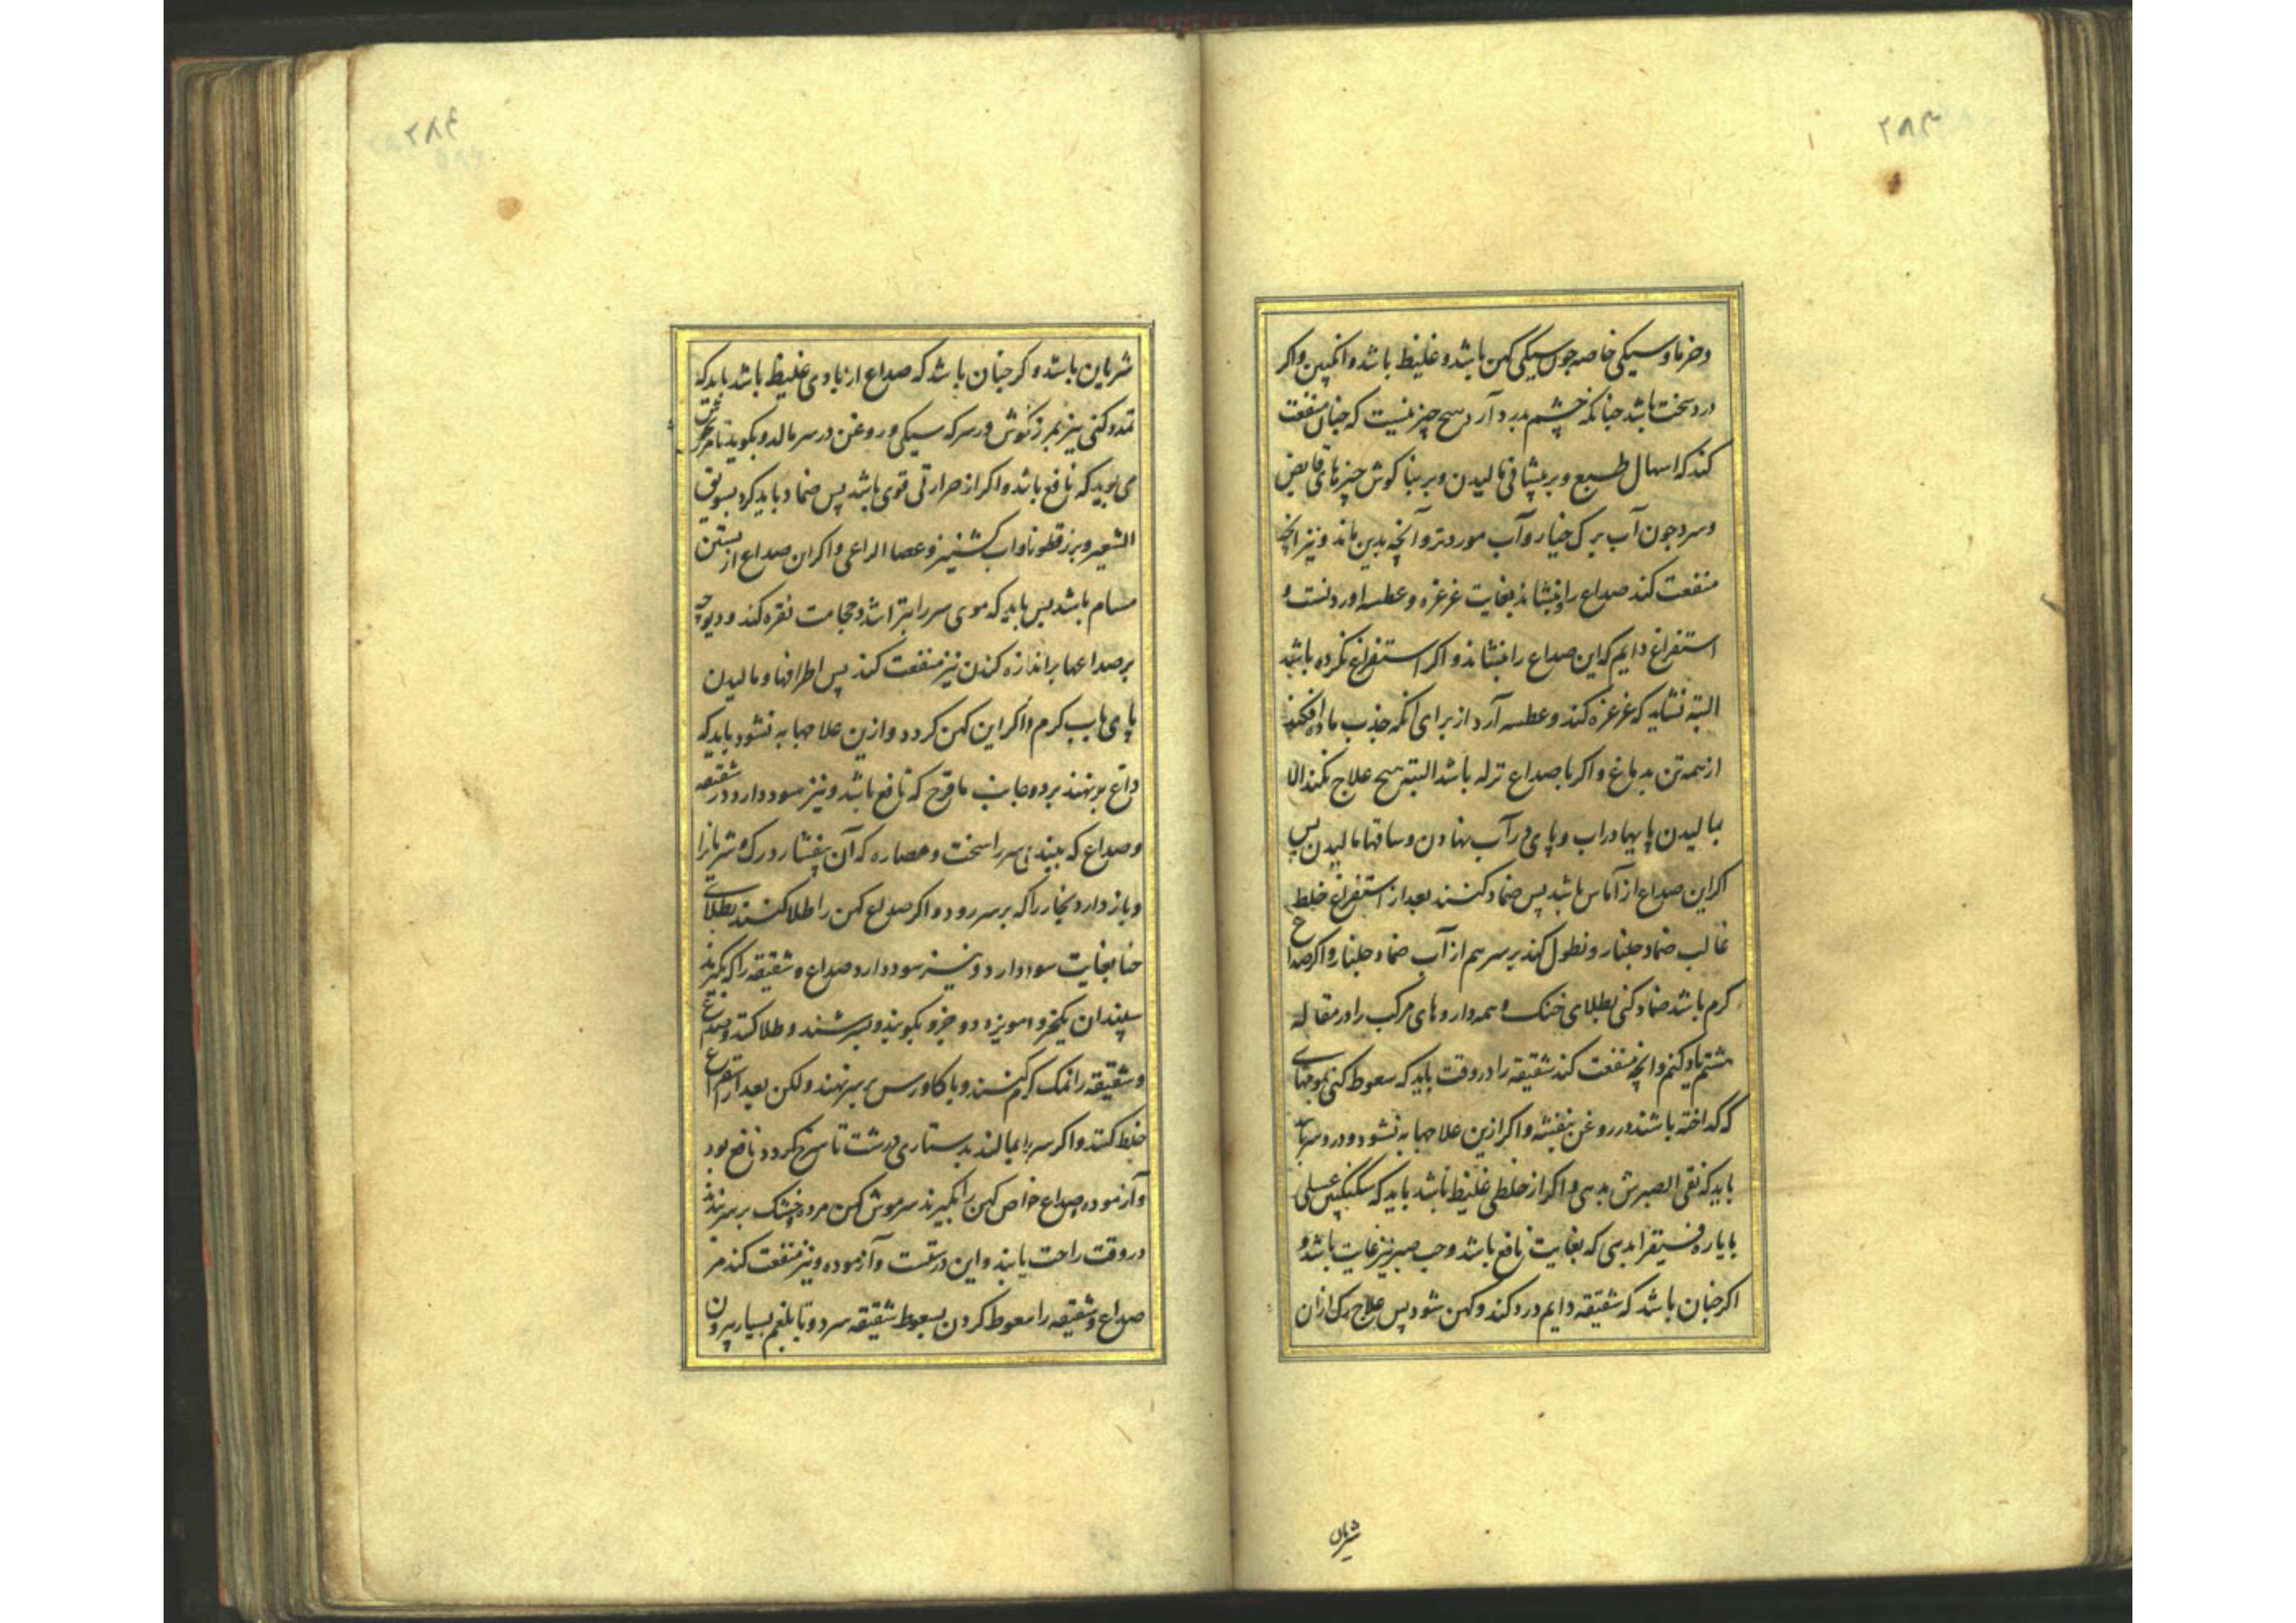 ۲۸۳
وخرما و سیکی خاصه چون سیکی کهن باشد و غلیظ باشد و انکبین و اکر
درد سخت باشد چنانکه چشم بدرد آرد هیچ چیز نیست که چنان منفعت
کند که اسهال طبع و بر پیشانی مالیدن و بر بنا کوش چیزهای قابض
و سرد چون آب برک خیار و آب مورد تر و آنچه بدین ماند و نیز آنچه
منفعت کند صداع را بنشاند بغایت غرغره و عطسه اوردنست و
استفراغ دایم که این صداع را بنشاند و اکر استفراغ نکرده باشد
البته نشاید که غرغره کند و عطسه آرد از برای آنکه جذب ماده افکند
از همه تن بدماغ و اکر با صداع نزله باشد البته هیچ علاج نکند الا
بمالیدن پایها در اب و پای در آب نهادن و ساقها مالیدن پس
اکر این صداع از آماس باشد پس ضماد کنند بعد از استفراغ خلط
غالب ضماد جلنار و نطول کند بر سر هم از آب ضماد جلنار و اکر صداع
کرم باشد ضماد کنی بطلای خنک و همه داروهای مرکب را در مقاله
هشتم یاد کنم و انچه منفعت کند شقیقه را در وقت باید که سعوط کنی بمومیای
که کداخته باشند در روغن بنفشه و اکر ازین علاجها به نشود و درد سر
باید که نقی الصبرش بدهی و اکر از خلطی غلیظ باشد باید که سکنکبین عسلی
با یاره فیقرا بدهی که بغایت نافع باشد و حب صبر نیز غایت باشد و
اکر چنان باشد که شقیقه دایم درد کند و کهن شود پس علاج رک ازان
شریان
۲۸۴
شریاین باشد و اکر چنان باشد که صداع از بادی غلیظ باشد باید که
کنی نیز بمرزنکوش در سرکه سیکی و روغن در سر مالد و بکوید تا
می بوید که نافع باشد و اکر از حرارتی قوی باشد پس ضماد باید کرد بسویق
الشعیر و بزر قطونا و اب کشنیز و عصا الراعی و اکر این صداع از بستن
مسام باشد پس باید که موی سر را بتراشد و حجامت نقره کند و دیوچه
بر صداعها براندازه کندن نیز منفعت کند پس اطرافها و مالیدن
پای باب کرم و اکر این کهن کردد و ازین علاجها به نشود باید که
داغ بر نهند بر دو جانب که نافع باشد و نیز سود دارد در شقیقه
و صداع که ببندی سر را سخت و عصاره که آن بیفشارد رک و شریانرا
و باز دارد بخار را که بر سر رود و اکر صداع کهن را طلا کنند بطلای
حنا بغایت سود دارد و نیز سود دارد صداع و شقیقه را که بکیرند
سپندان یکجزو و مویزه دو جزو بکوبند و بسرشند و طلا کنند و صداع
و شقیقه را نمک کرم کنند و با کاورس بر سر نهند و لکن بعد از استفراغ
خلط کنند و اکر سر را بمالند بدستاری درشت تا سرخ کردد نافع بود
و آزموده صداع خاص کهن را بکیرند سر موش کهن مرده خشک بر سر بندند
در وقت راحت یابند و این درستست و آزموده و نیز منفعت کند مر
صداع و شقیقه را سعوط کردن بسعوط شقیقه سرد و تا بلغم بسیار بیرون